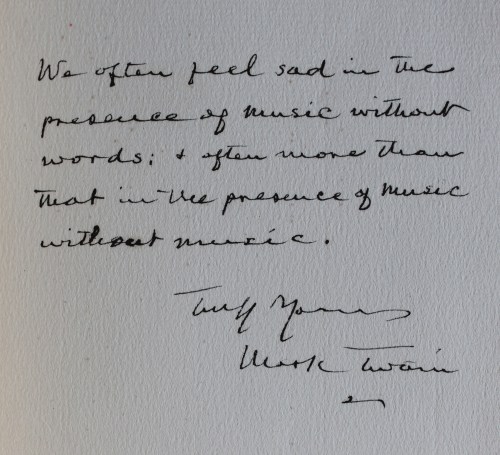 We often feel sad in the
presence of music without
words; & often more than
that in the presence of music
without music.
Truly Yours
Mark Twain